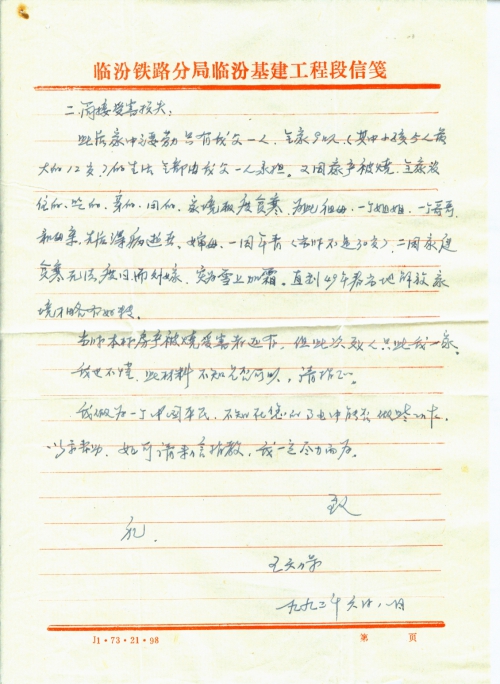 临汾铁路分局临汾基建工程段信笺
二、间接受害损失：
此后家中主要劳力只有我父一人，全家9口人（其中小孩5人最
大的12岁）的生活全部由我父一人承担。又因家产被烧，全家没
住的、吃的、穿的、用的，家境极度贫寒，为此祖母、一个姐姐、一个哥哥
和母亲先后得病逝去。婶母一因年青（当时不足30岁）二因家庭
贫寒无法度日而别嫁，实为雪上加霜。直到49年老当地解放家
境才略有好转。
当时本村房产被烧受害者还有，但此次死人只此我一家。
我也不懂，此材料不知是否可以，请指正。
我做为一个中国平民，不知在您的
以示帮助，如可请来信指教，我一定尽力而为。
致
礼.
王
一九九二年六月八日
J1·73·21·98
第 页